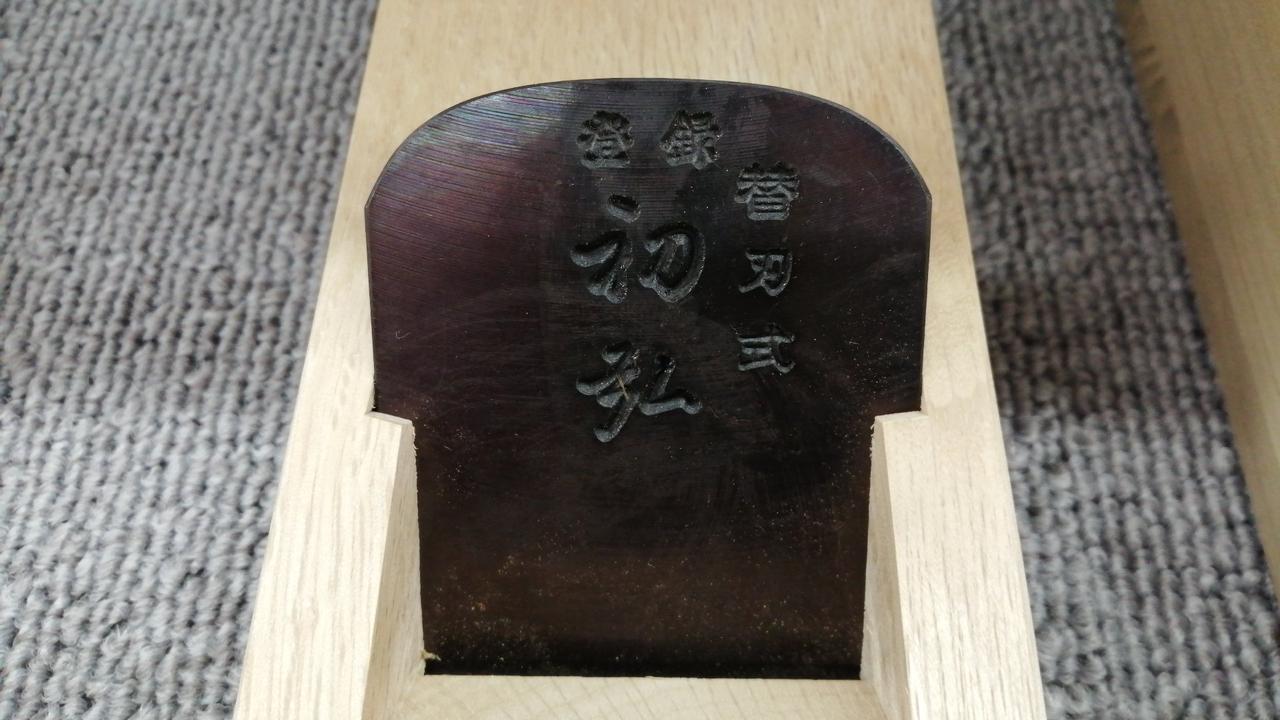 登録
初弘
替刃式